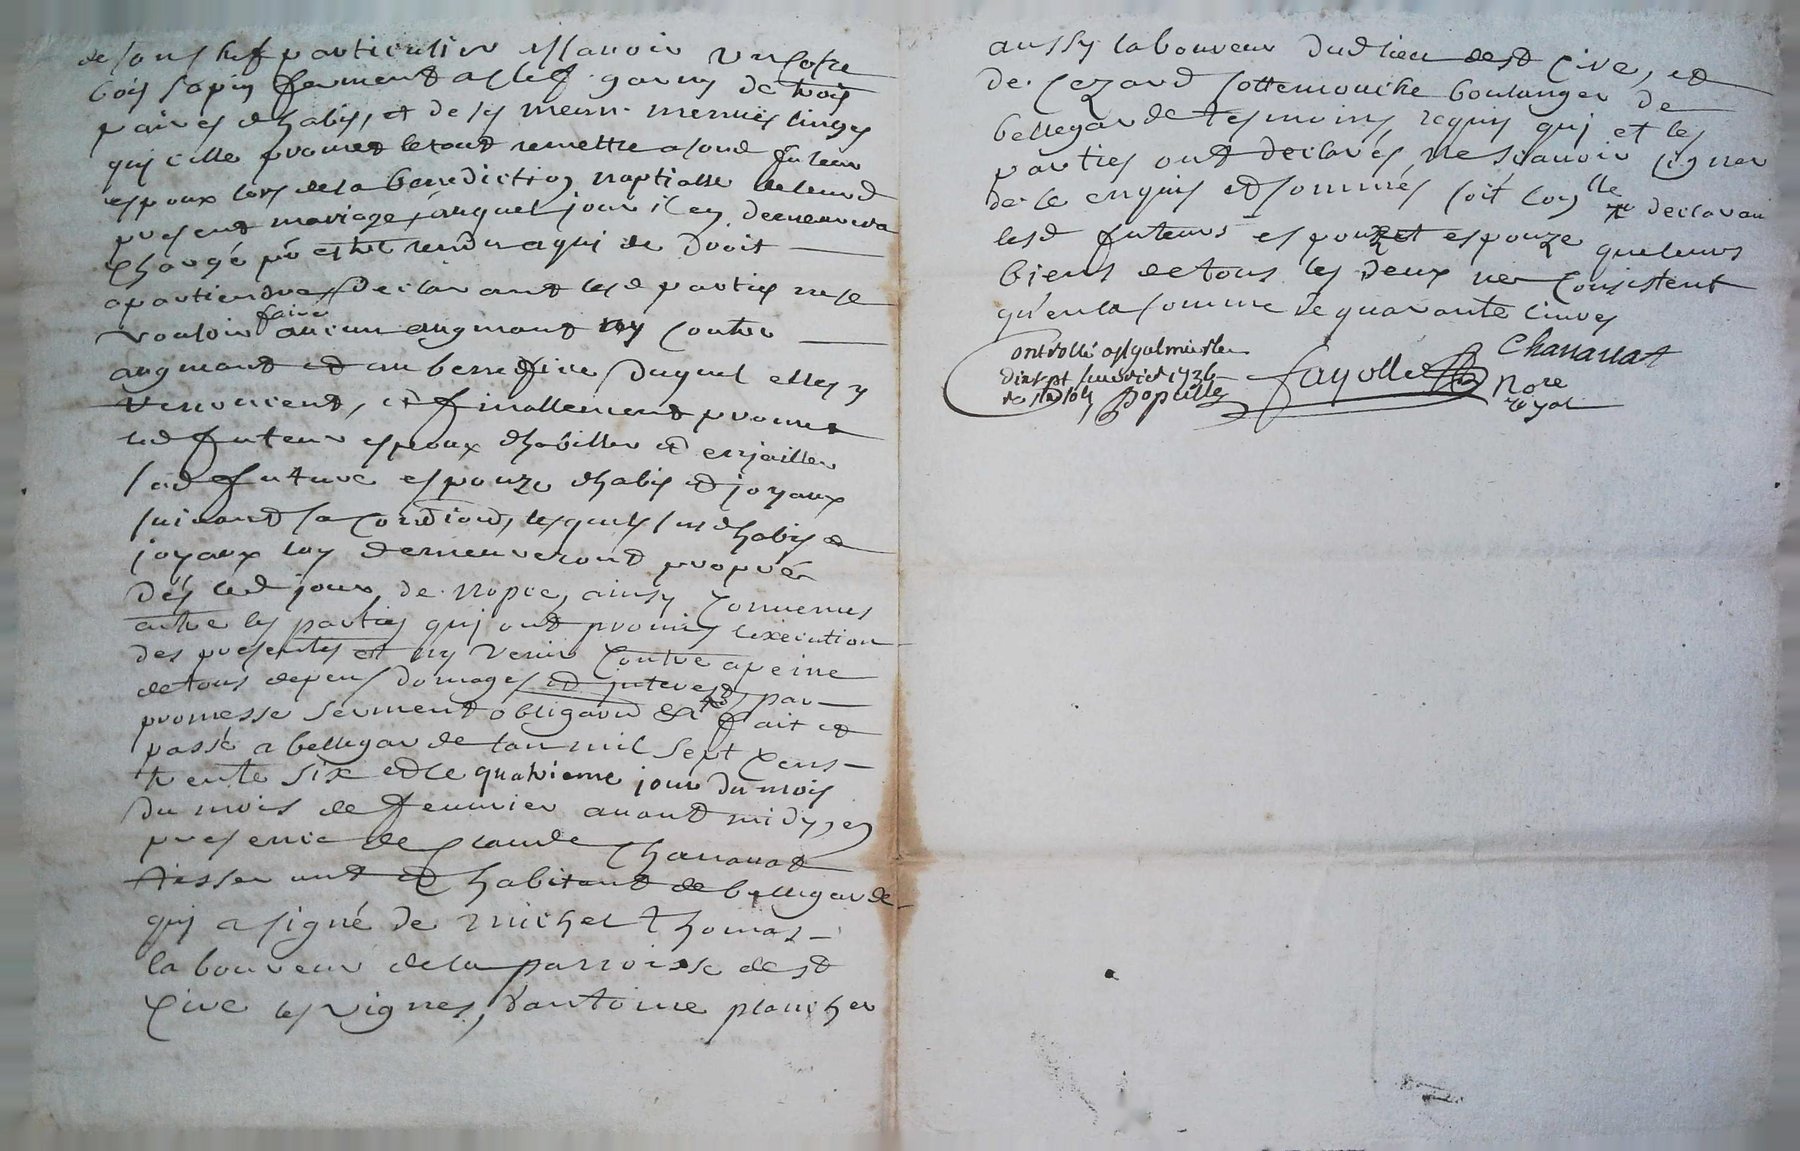 de son chef particulier, assavoir un cofre
bois sapin fermant a clef garny de trois
paires d'habis, et de ses menu menües linges
quj celle promet le tout remettre a sond futeur
espoux lors de la benediction noptialle de leurd
present mariage, auquel jour il en demeurera
chargé pr estre rendu a quj de droit
apartiendra, declarant lesd parties ne se
vouloir faire aucun augmant ny contre
augmant et au benefice duquel elles y
renoncent, et finallement promet
led futeur espoux d'habiller et enjailler
sad future espouze d'habis et joyaux
suivant sa condiond, lesquels susd habis et
joyaux luy demeureront propres
dés led jour de nopce, ainsy convenus
entre les parties quj ont promis l'execution
des presentes et ny venir contre a peine
de tous depens domages et interest, par
promesse serment obligaond &c fait et
passé a bellegarde lan mil sept cens
trente six et le quatrieme jour du mois
du mois de feuvrier avant midy, en
presence de Claude Chavanat
tisserant et habitant de bellegarde
quj a signé de michel thomas
laboureur de la parroisse de st
Cire les vignes, d'antoine plancher
aussy laboureur dud lieu de st Cire, et
de Cezard Cottemouche boulanger de
bellegarde tesmoins requis quj et les
parties ont declarés ne scavoir signer
de ce enquis et sommés soit con lle declarant
lesd futeurs espoux et espouze que leurs
biens de tous les deux ne consistent
qu'en la somme de quarante livres
Chavanat
Controllé a st galmier le
dix sept feuvrier 1736
Fayolle
Nore
royal